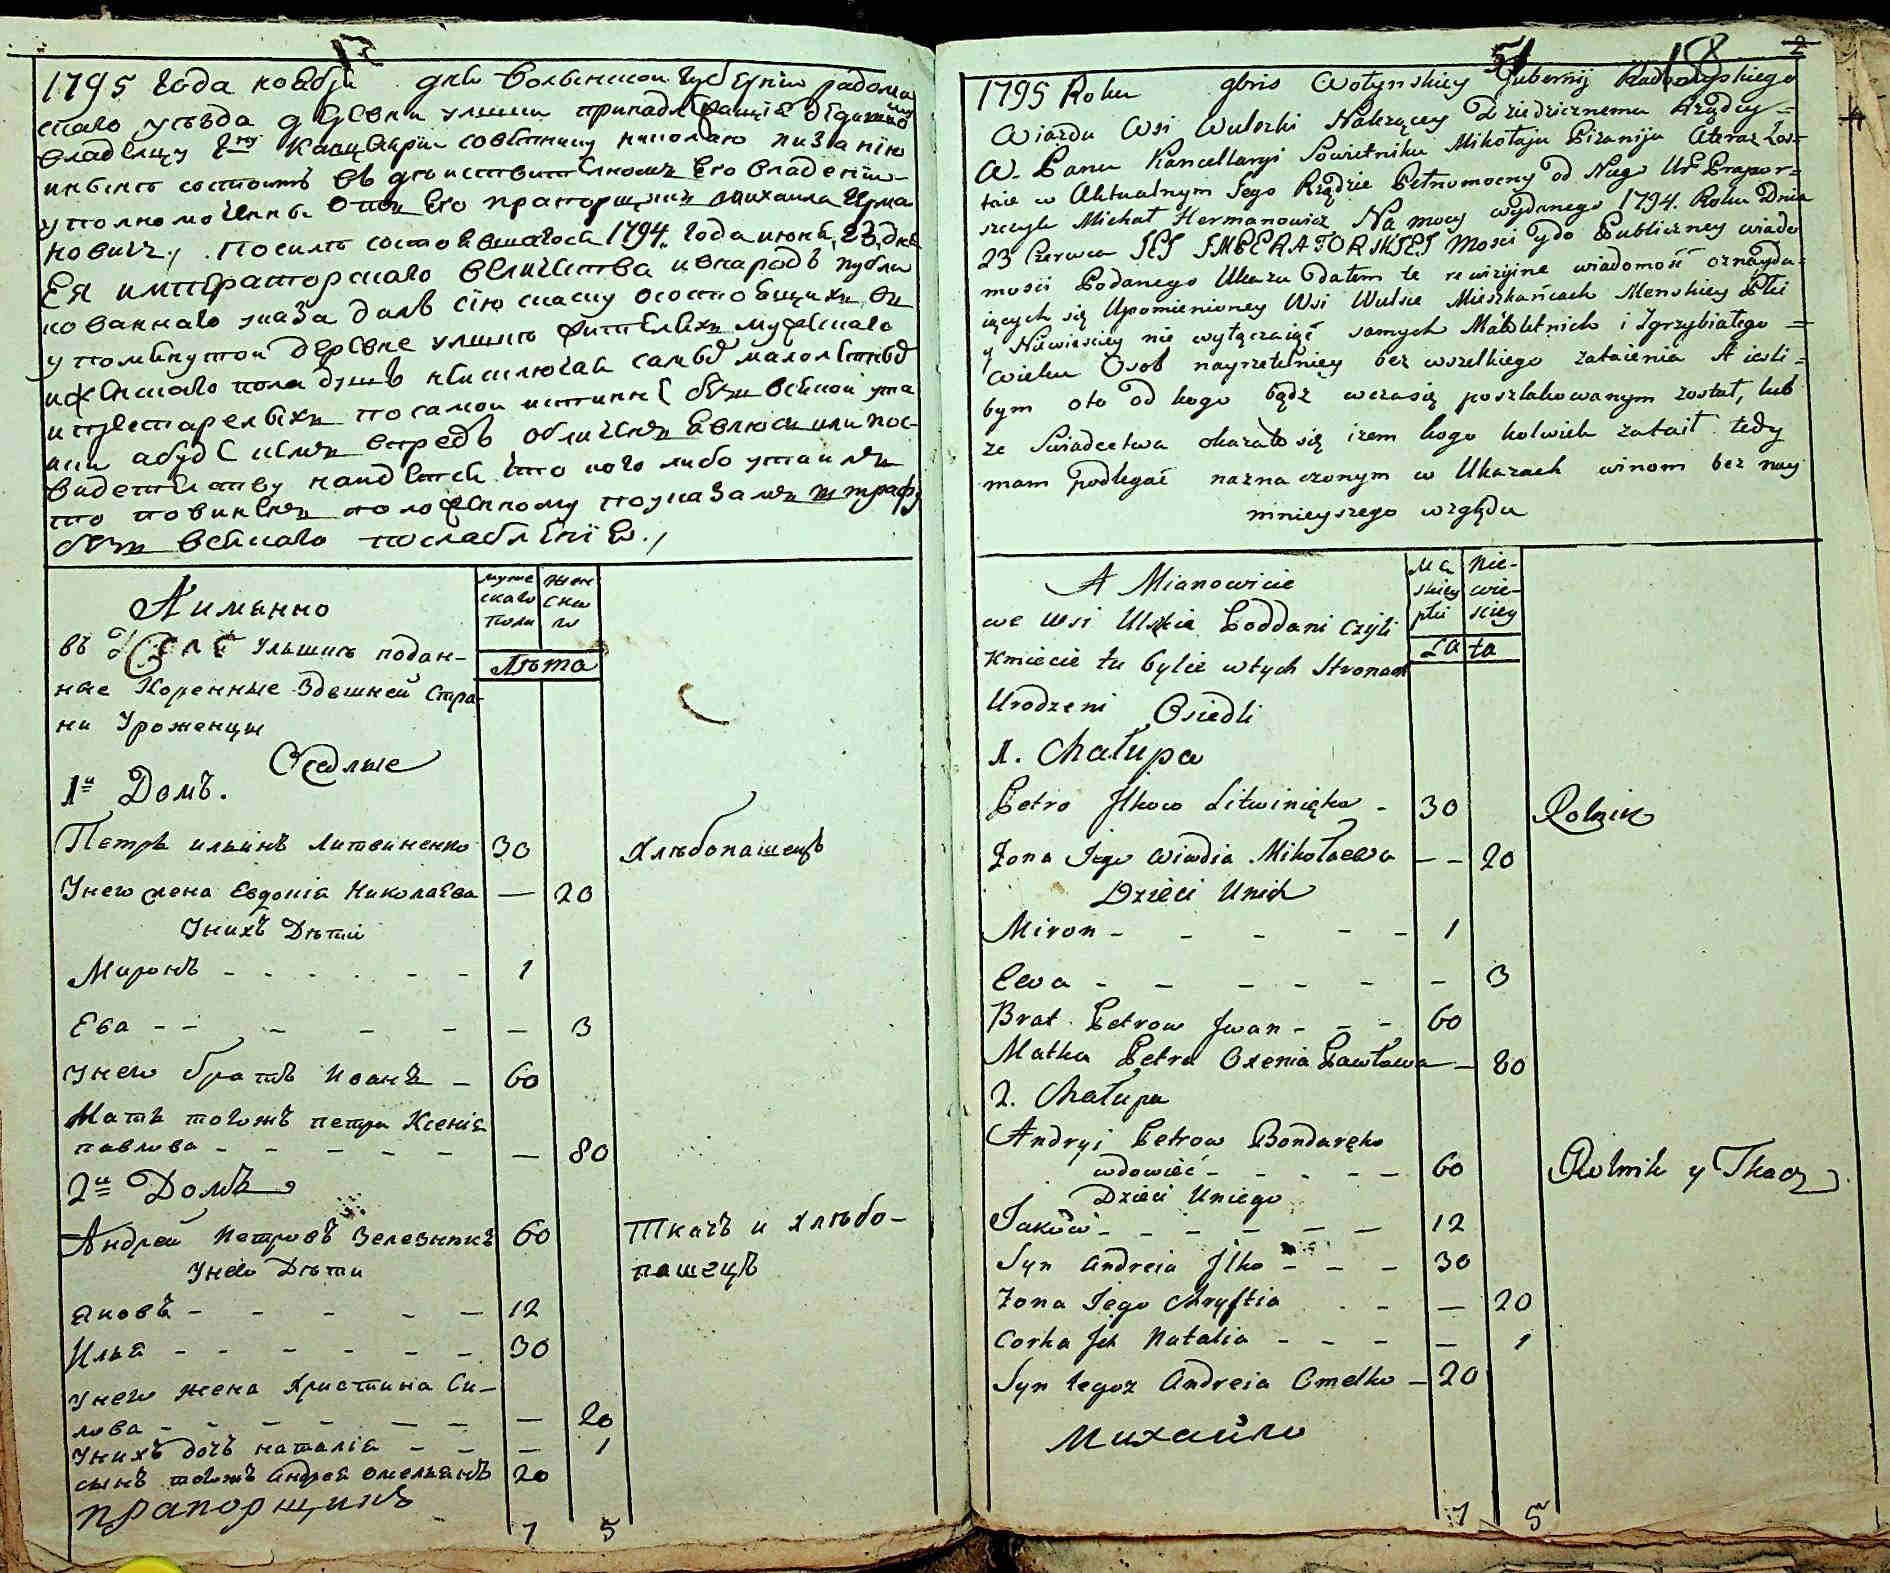 1795 года ноября дня Волынской губернiи радомы
скаго уезда деревни улшки принадлежащiе дедично
владелцу Гну Канцелярiи советнику николаю пизанiю
инынъ состоитъ въ действителномъ его владенiи
уполномоченны отъ его прапорщикъ михаила Ерма
новичъ, посилъ состоявшагось 1794 года июня 23 дня
Ея императорскаго величества ивнародъ публи
кованнаго указа далъ сiю скаску осостоящихъ въ
упомянутой деревне улшкъ жителехъ мужескаго
иженскаго пола душъ неисключая самые малолетные
ипрестарелыхъ посамой истинне безъ всякой ута
ики абуде кемъ впредь обличенъ явлюсь или посви
видетелству найдется что кого либо утаилъ
то повиненъ положенному поуказамъ штрафу
безъ всякаго послабленiя.
Аимянно
мужескаго пола
женскаго
Лѣта
въ Селе Ульшкъ подан-
ные Коренные Здешней Стра-
ни Уроженцы
Оседлые
1й Домъ.
Петръ ильинъ Литвиненко 30 Хлѣбопашецъ
Унего жена Евдокiя Николаева — 20
Унихъ Дѣти
Миронъ - - - - - - 1
Ева - - - - - - 3
Унего братъ Иванъ - 60
Мать тогожъ петра Ксенiя
павлова - - - - - — 80
2й Домъ
Андрей Петровъ Зелезнякъ 60 Ткачъ и хлѣбо-
Унего Дѣти пашецъ
Яковъ - - - - - 12
Илья - - - - - - 30
Унего жена Христина Си-
лова - - - - - - — 20
Унихъ дочь наталiя - - — 1
сынъ тогожъ андрея омельянъ 20
прапорщикъ
7 5
51 18 2
1795 Roku 9bris Wołynskiey Gubernij Radomyskiego
Wiazdu Wsi Wulszki Należącey Dziedzicznemu Rządcy =
W. Panu Kancellaryi Sowietniku Mikołaju Pizaniju Ateraz Zos=
taie w Aktualnym Jego Rządzie Pełnomocny od Niego Ur Prapor=
szczyk Michał Hermanowicz Na mocy wydanego 1794. Roku Dnia
23 Czerwca JEJ IMPERATORSKIEJ Mości ydo Publiczney wiado
mości Podanego Ukazu Dałem te rewizyine wiadomość oznaydu=
iących się Upomienioney Wsi Wulsce Mieszkańcach Menskiey Płci
y Niewieściey nie wyłączaiąc samych Małoletnich i Zgrzybiałego =
wieku Osob nayrzetelniey bez wszelkiego zataienia A iesli=
bym oto od kogo bądź wczasię poszlakowanym został, lub
ze Swiadectwa okazało się iżem kogo kolwiek zataił tedy
mam podlegać naznaczonym w Ukazach winom bez nay
mnieyszego względu
A Mianowicie
Męskiey płci
Niewieściey
Lata
we wsi Ulszkie Poddani Czyli
Kmiecie tu bylie wtych Stronach
Urodzeni Osiedli
1. Chałupa
Petro Ilkow Litwinięko - 30 Rolnik
Zona Jego Wiwdia Mikołaewa - - 20
Dzieci Unich
Miron - - - - - 1
Ewa - - - - - - 3
Brat Petrow Iwan - - - 60
Matka Petra Oxenia Pawłowa - 80
2. Chałupa
Andryi Petrow Bondaręko
wdowiec - - - - - 60 Rolnik y Tkacz
Dzieci Uniego
Jaków - - - - - - 12
Syn Andreia Ilko - - - 30
Zona Jego Chrystia - - — 20
Corka Ich Natalia - - - — 1
Syn tegoz Andreia Omelko - 20
Михайло
7 5